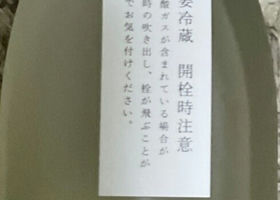 要冷蔵 開栓時注意
酸ガスが含まれている場合が
時の吹き出し、栓が飛ぶことが
でお気を付けください。